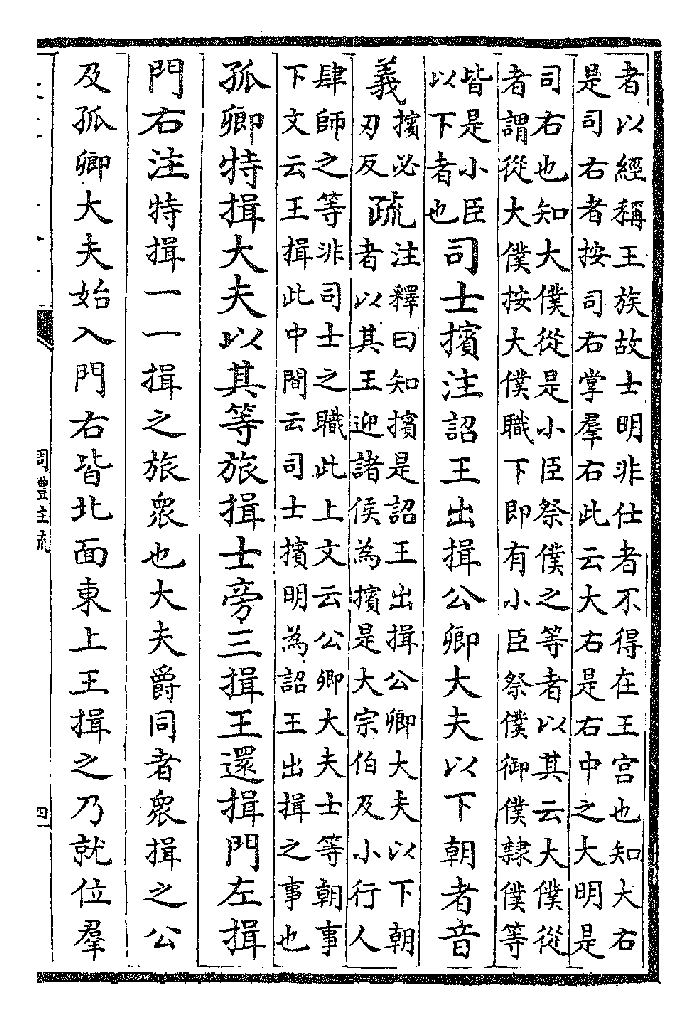 者以經稱王族故士明非仕者不得在王宮也知大右
是司右者按司右掌羣右此云大右是右中之大明是
司右也知大僕從是小臣祭僕之等者以其云大僕從
者謂從大僕按大僕職下即有小臣祭僕御僕隸僕等
皆是小臣
以下者也
司士擯注詔王出揖公卿大夫以下朝者音
義
擯必
刃反
疏
注釋曰知擯是詔王出揖公卿大夫以下朝
者以其王迎諸侯為擯是大宗伯及小行人
肆師之等非司士之職此上文云公卿大夫士等朝事
下文云王揖此中間云司士擯明為詔王出揖之事也
孤卿特揖大夫以其等旅揖士旁三揖王還揖門左揖
門右注特揖一一揖之旅衆也大夫爵同者衆揖之公
及孤卿大夫始入門右皆北面東上王揖之乃就位羣
周禮注疏
四